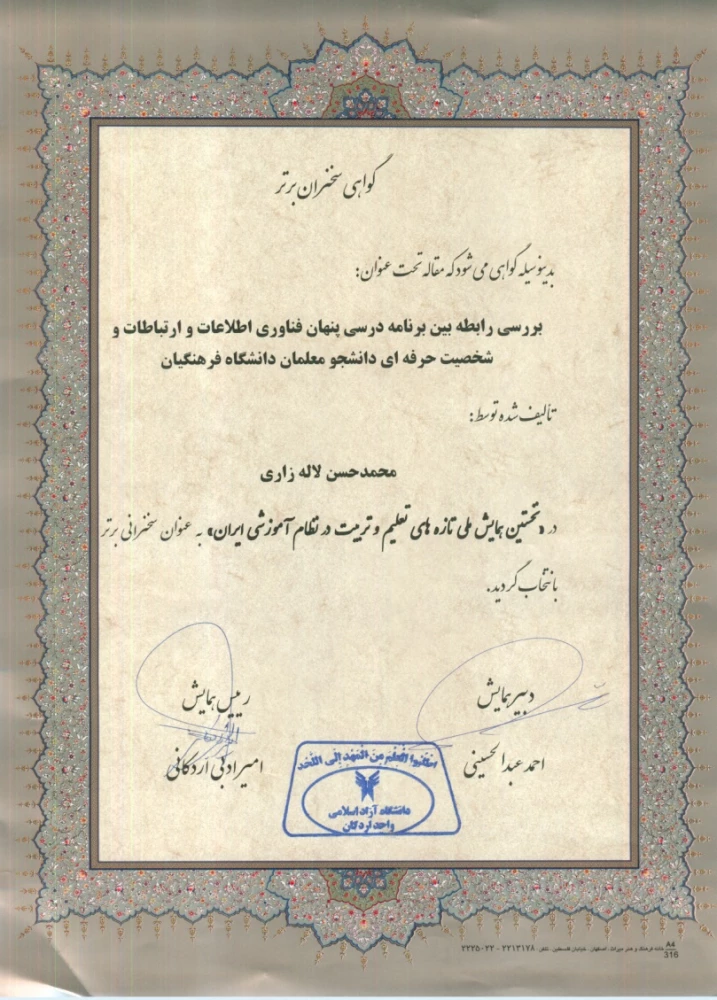 گواهی سخنران برتر
بدینوسیله گواهی می شود که مقاله تحت عنوان:
بررسی رابطه بین برنامه درسی پنهان فناوری اطلاعات و ارتباطات و
شخصیت حرفه ای دانشجو معلمان دانشگاه فرهنگیان
تألیف شده توسط:
محمدحسن لاله زاری
در «نخستین همایش ملی تازه های تعلیم و تربیت در نظام آموزشی ایران» به عنوان سخنرانی برتر
انتخاب گردید.
دبیر همایش
رییس همایش
احمد عبدالحسینی
امیر ادبی اردکانی
اطلبوا العلم من المهد الی اللحد
دانشگاه آزاد اسلامی
واحد اردکان
A4
316
خانه فرهنگ و هنر میراث، اصفهان، خیابان فلسطین، تلفن: ۲۲۱۳۱۷۸ - ۲۲۲۵۰۲۲